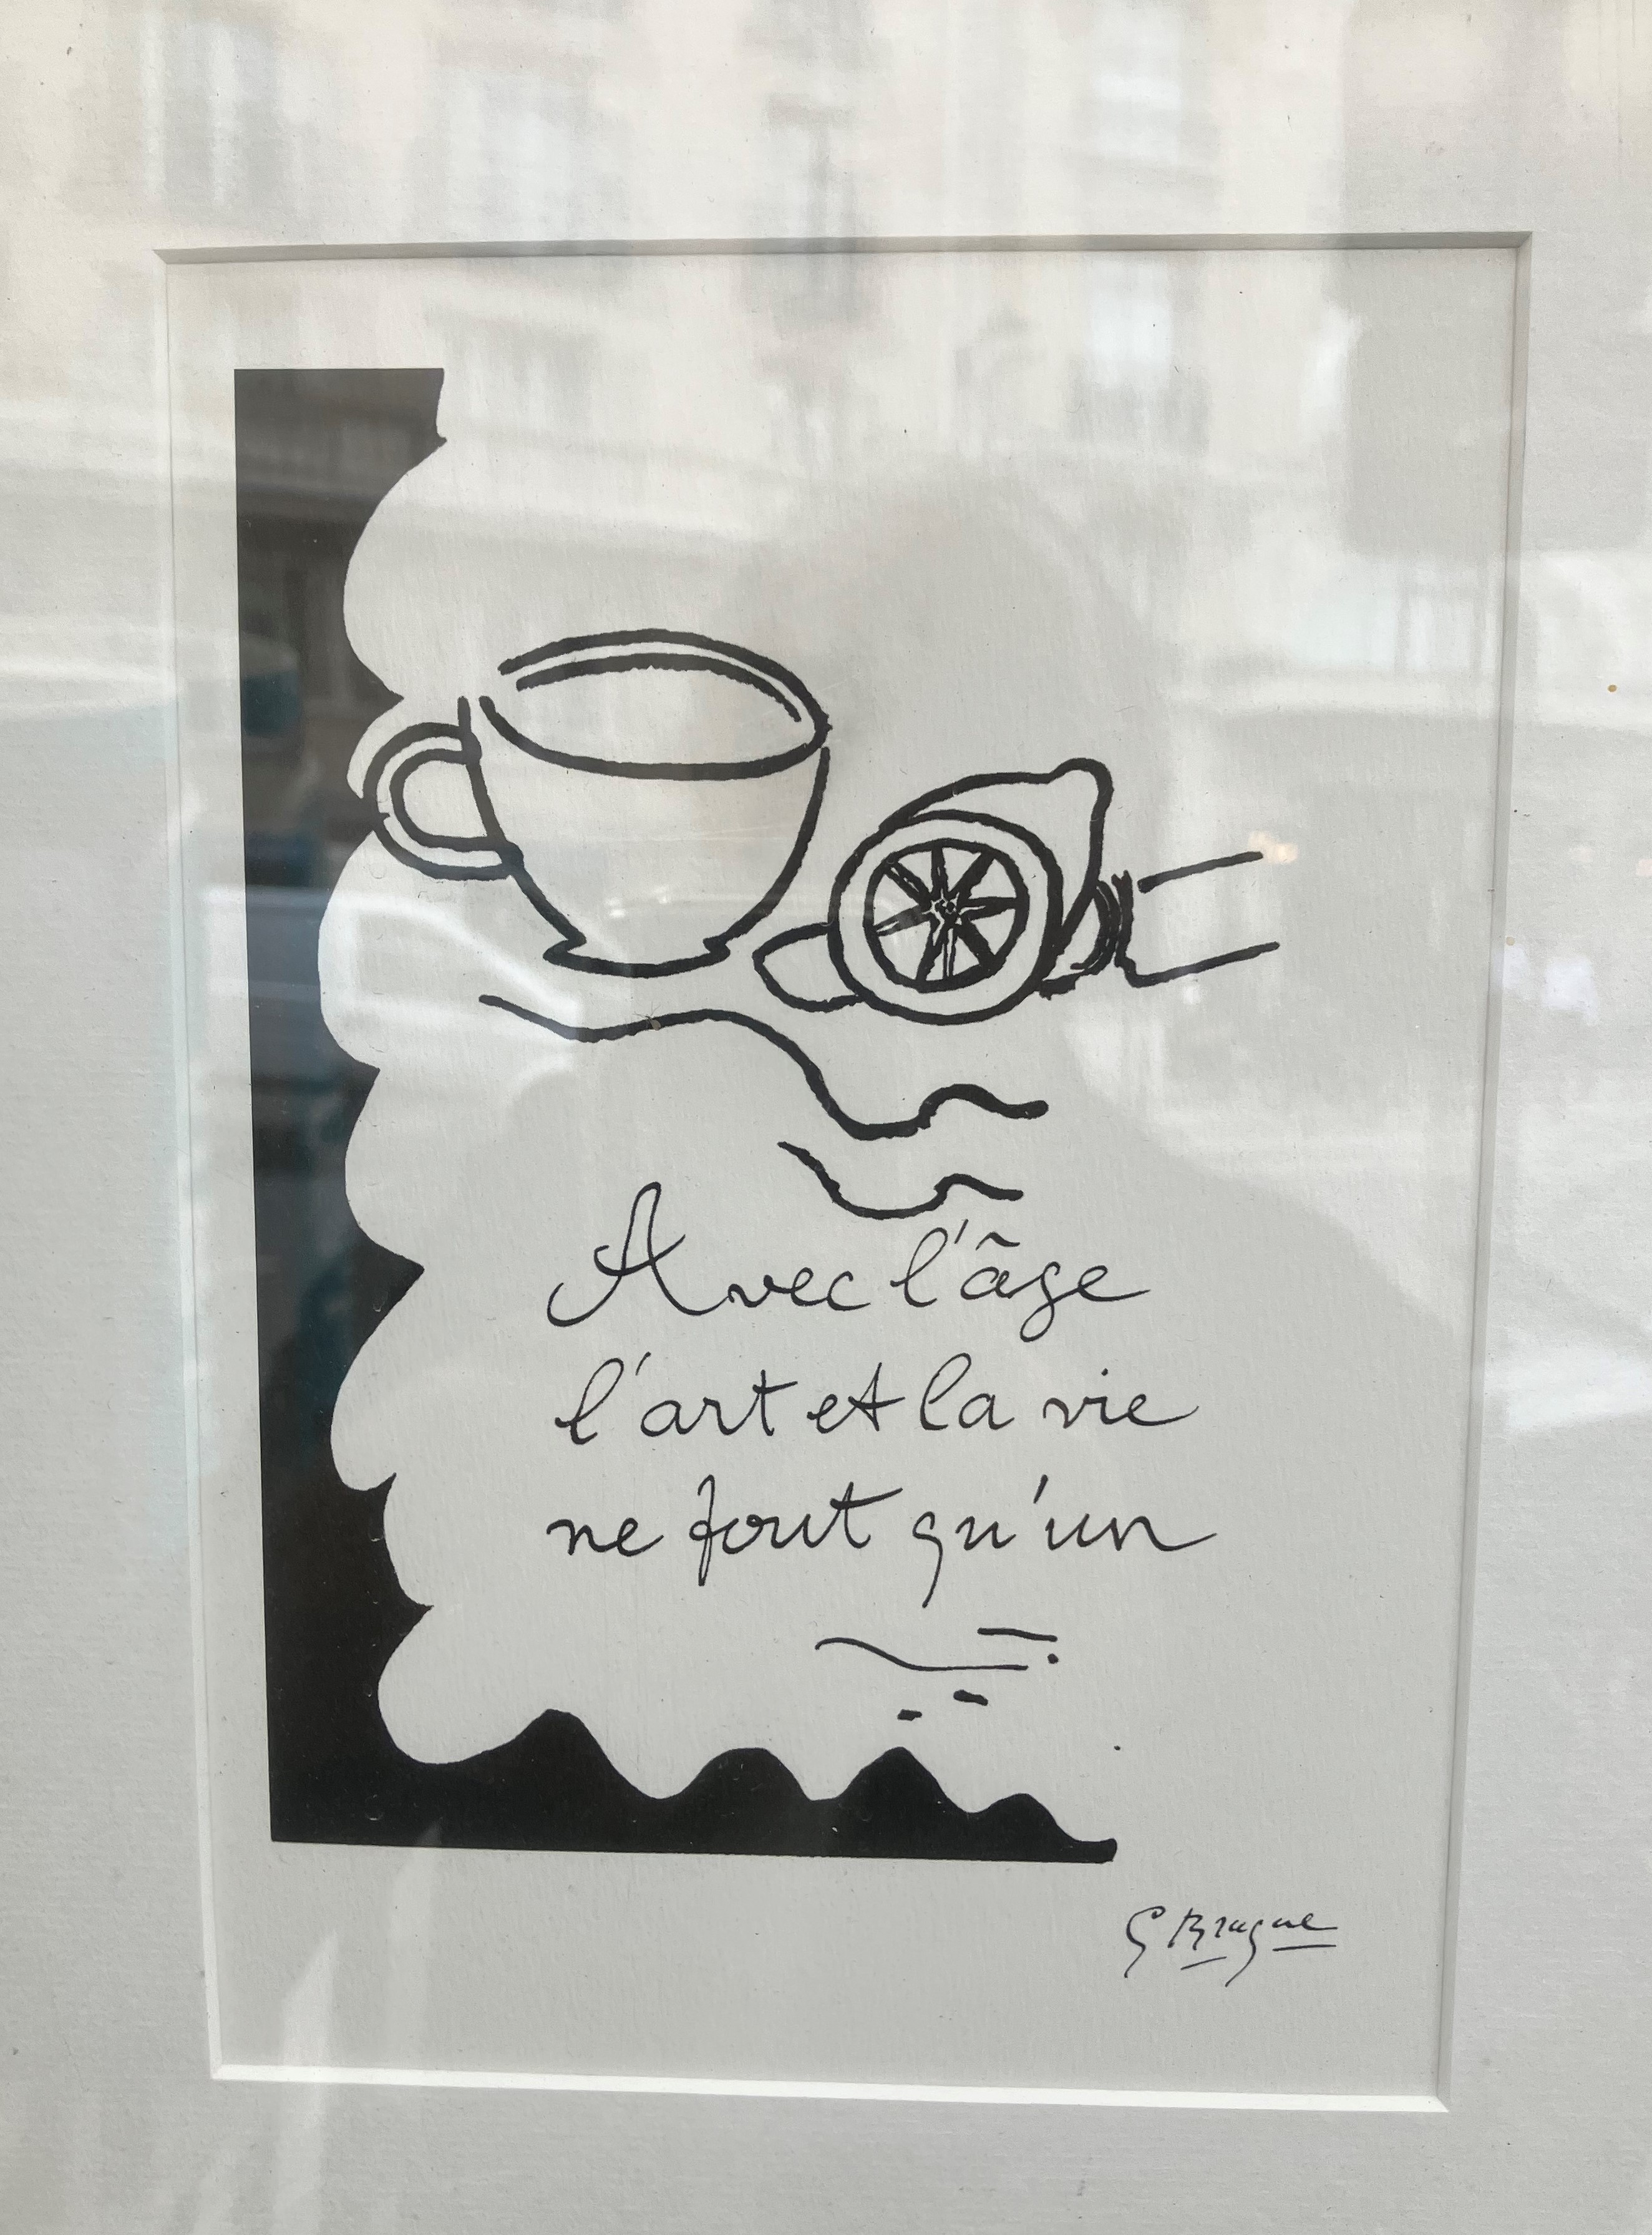 Avec l'âge
l'art et la vie
ne font qu'un
G Braque